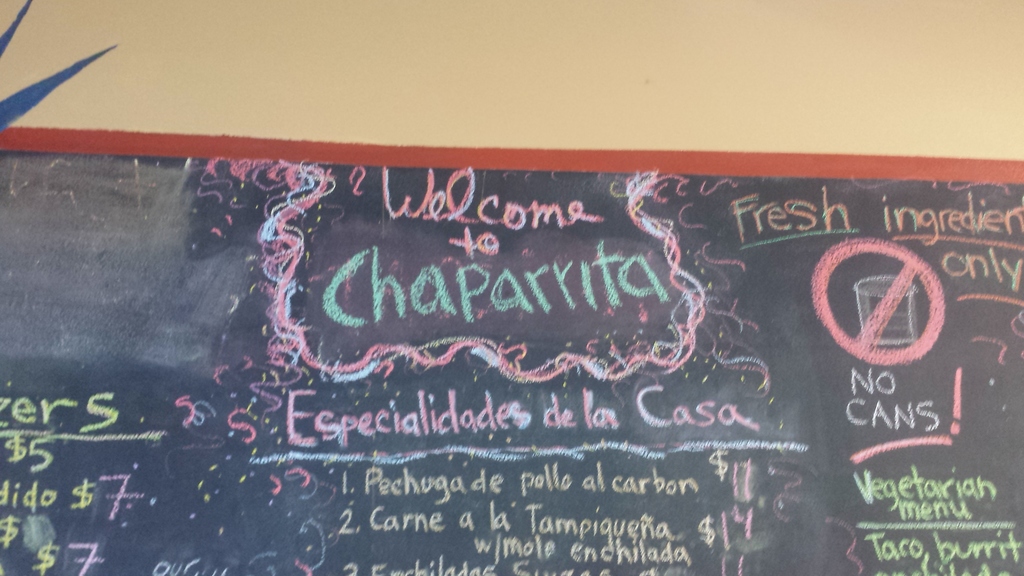 Welcome
to
Chaparrita
Especialidades de la Casa
1. Pechuga de pollo al carbon $11
2. Carne a la Tampiqueña $14
w/mole enchilada
3. Enchiladas
Fresh ingredient
only
NO
CANS!
Vegetarian
menu
Taco, burrit
zers
$5
dido $7
$
$7